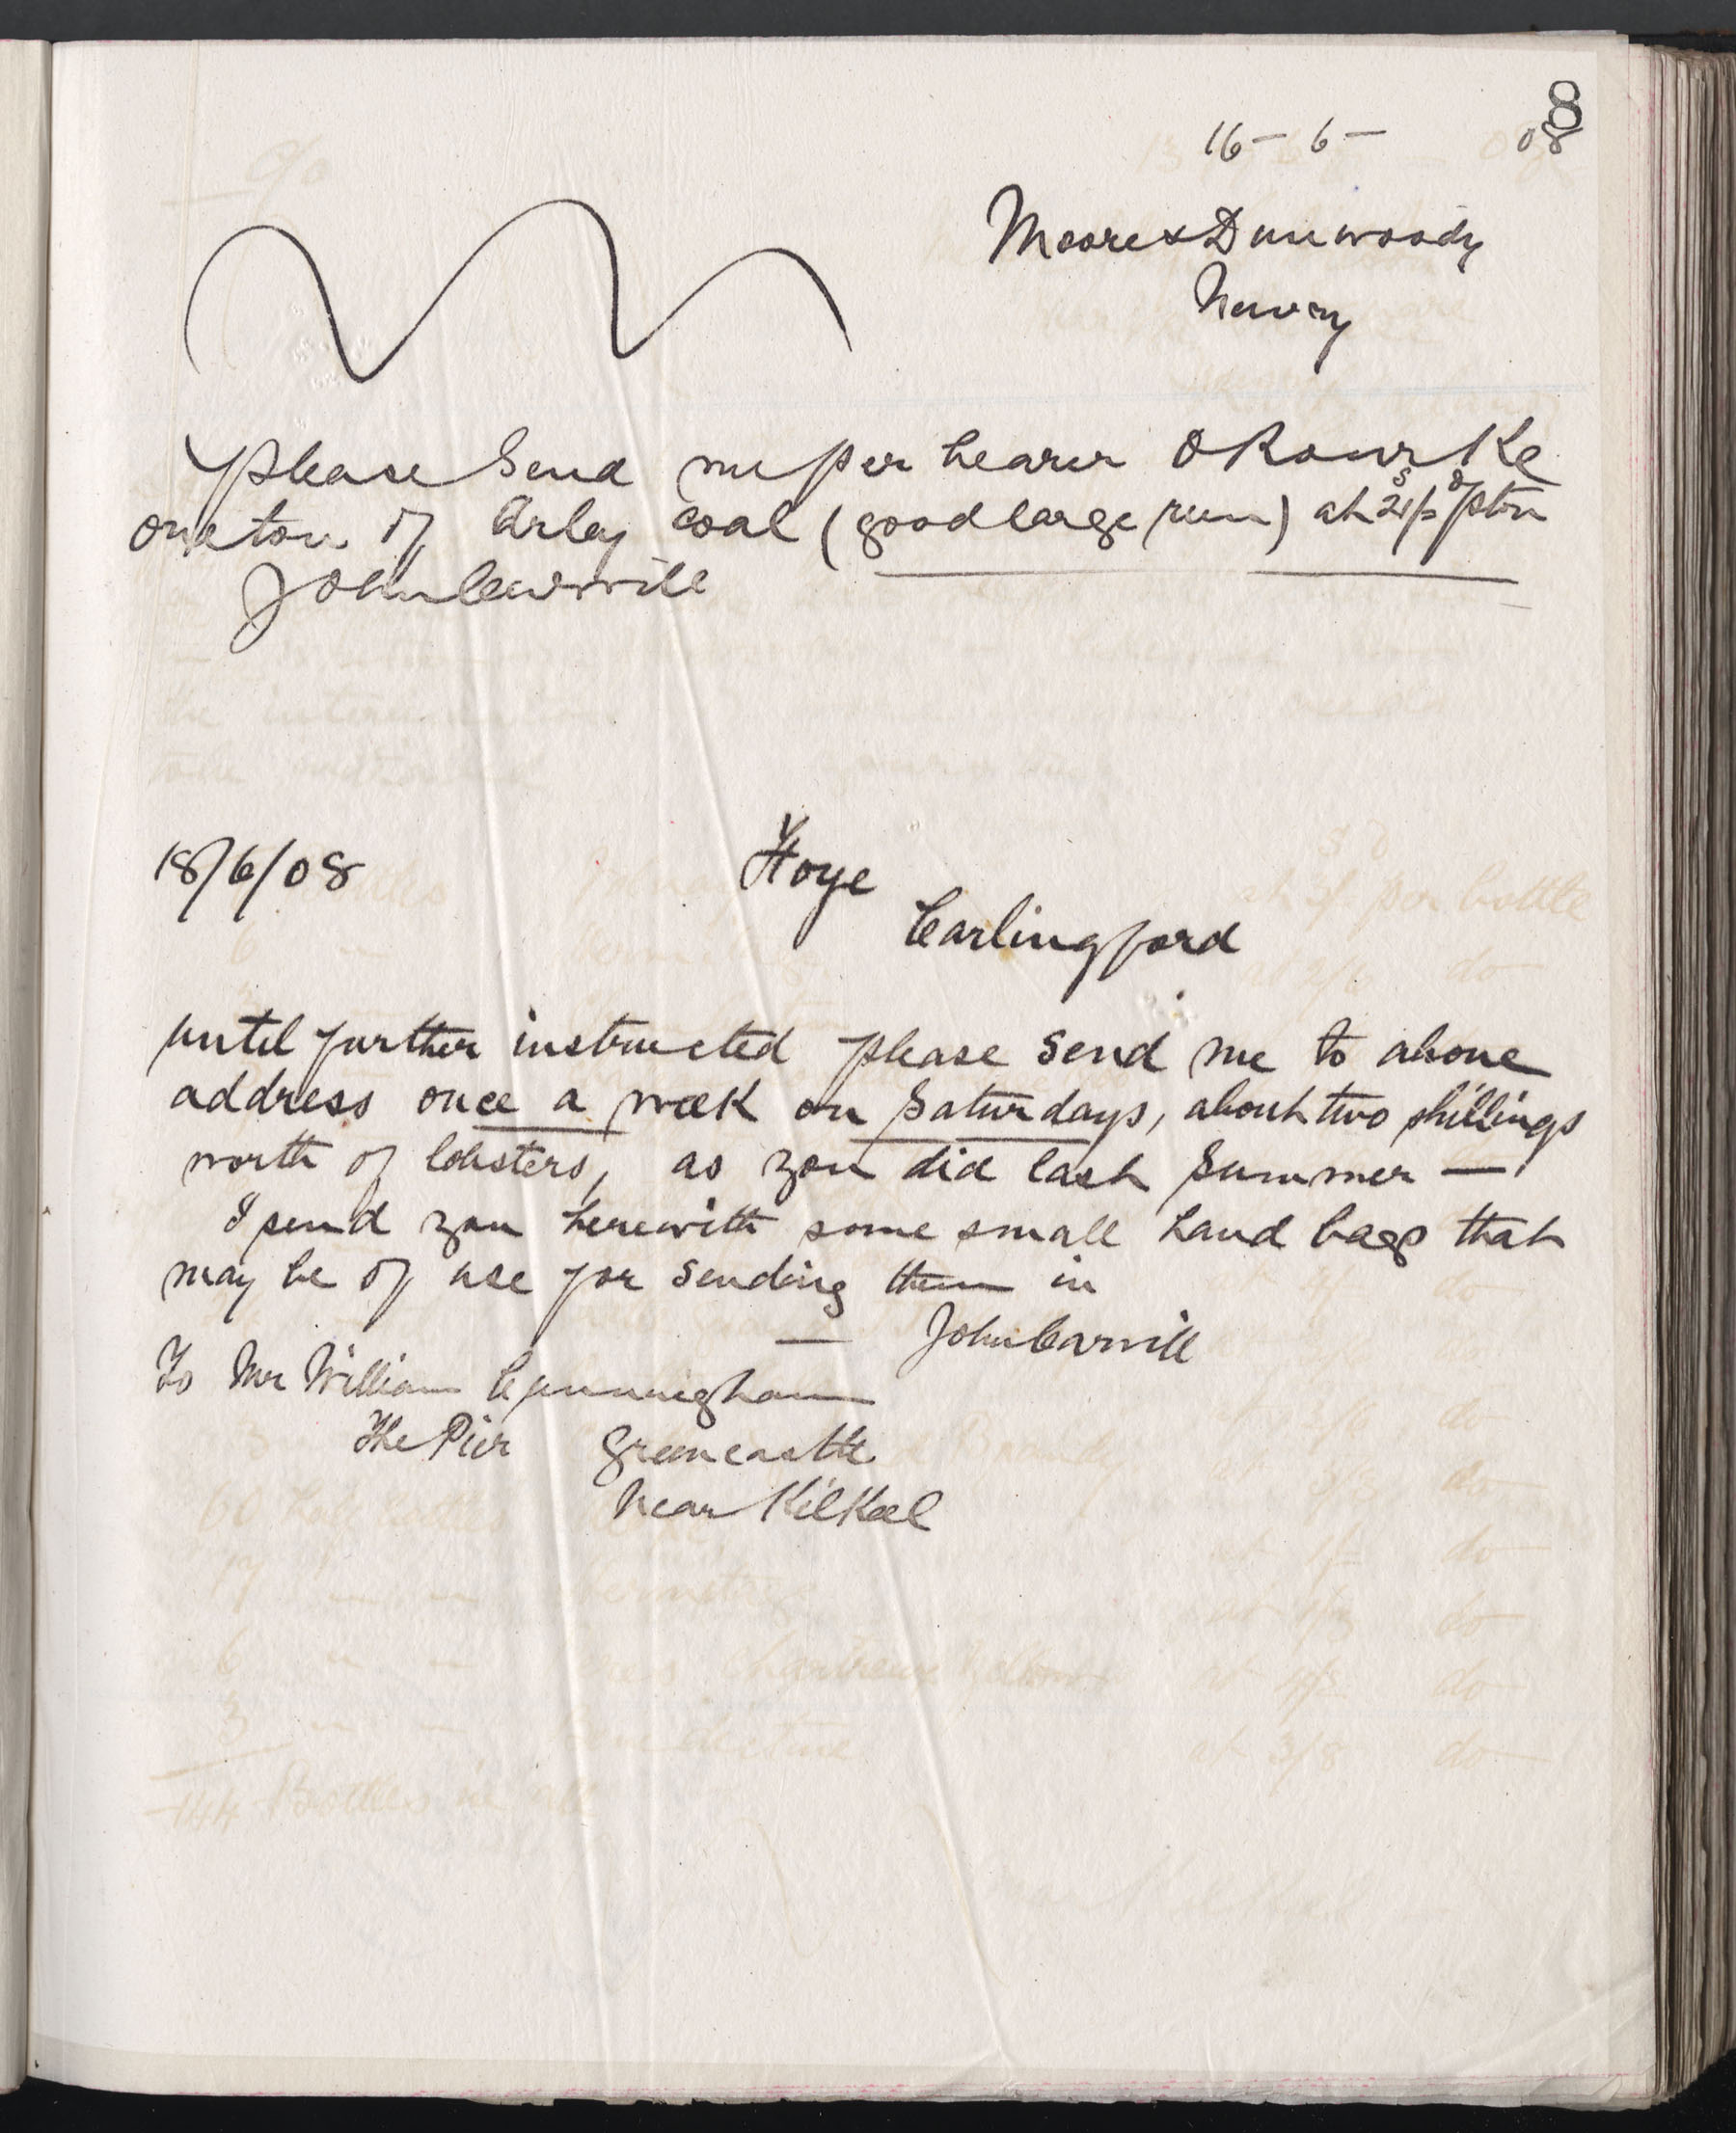 8
16 - 6 - 08
Moore & Dunwoody
Newry
please Send me per bearer O Rourke
one ton of Arley coal (good large run) at 21/3 p ton
John Carvill
18/6/08
Hoye
Carlingford
until further instructed please send me to above
address once a week on Saturdays, about two shillings
worth of lobsters, as you did last Summer —
I send you herewith some small hand bags that
may be of use for sending them in
— John Carvill
To Mr William Cunningham
The Pier Greencastle
Near Kilkeel